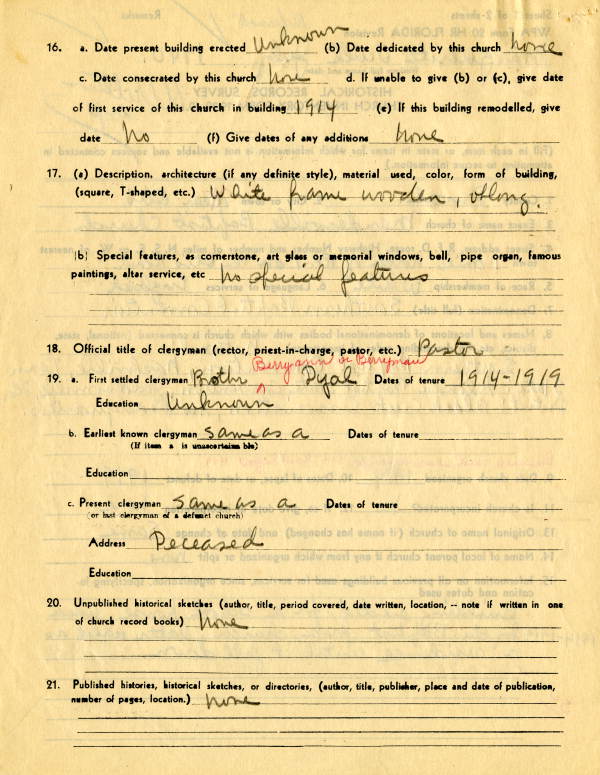 16. a. Date present building erected Unknown (b) Date dedicated by this church None
c. Date consecrated by this church None d. If unable to give (b) or (c), give date
of first service of this church in building 1914 (e) If this building remodelled, give
date No (f) Give dates of any additions None
17. (a) Description, architecture (if any definite style), material used, color, form of building,
(square, T-shaped, etc.) White frame wooden, oblong.
(b) Special features, as cornerstone, art glass or memorial windows, bell, pipe organ, famous
paintings, altar service, etc No special features
18. Official title of clergyman (rector, priest-in-charge, pastor, etc.) Pastor
Berryann or Berryman
19. a. First settled clergyman Brothr Dyal Dates of tenure 1914-1919
Education Unknown
b. Earliest known clergyman same as a Dates of tenure
(If item a is unascertainable)
Education
c. Present clergyman same as a Dates of tenure
(or last clergyman of a defunct church)
Address Deceased
Education
20. Unpublished historical sketches (author, title, period covered, date written, location, -- note if written in one
of church record books) None
21. Published histories, historical sketches, or directories, (author, title, publisher, place and date of publication,
number of pages, location.) None